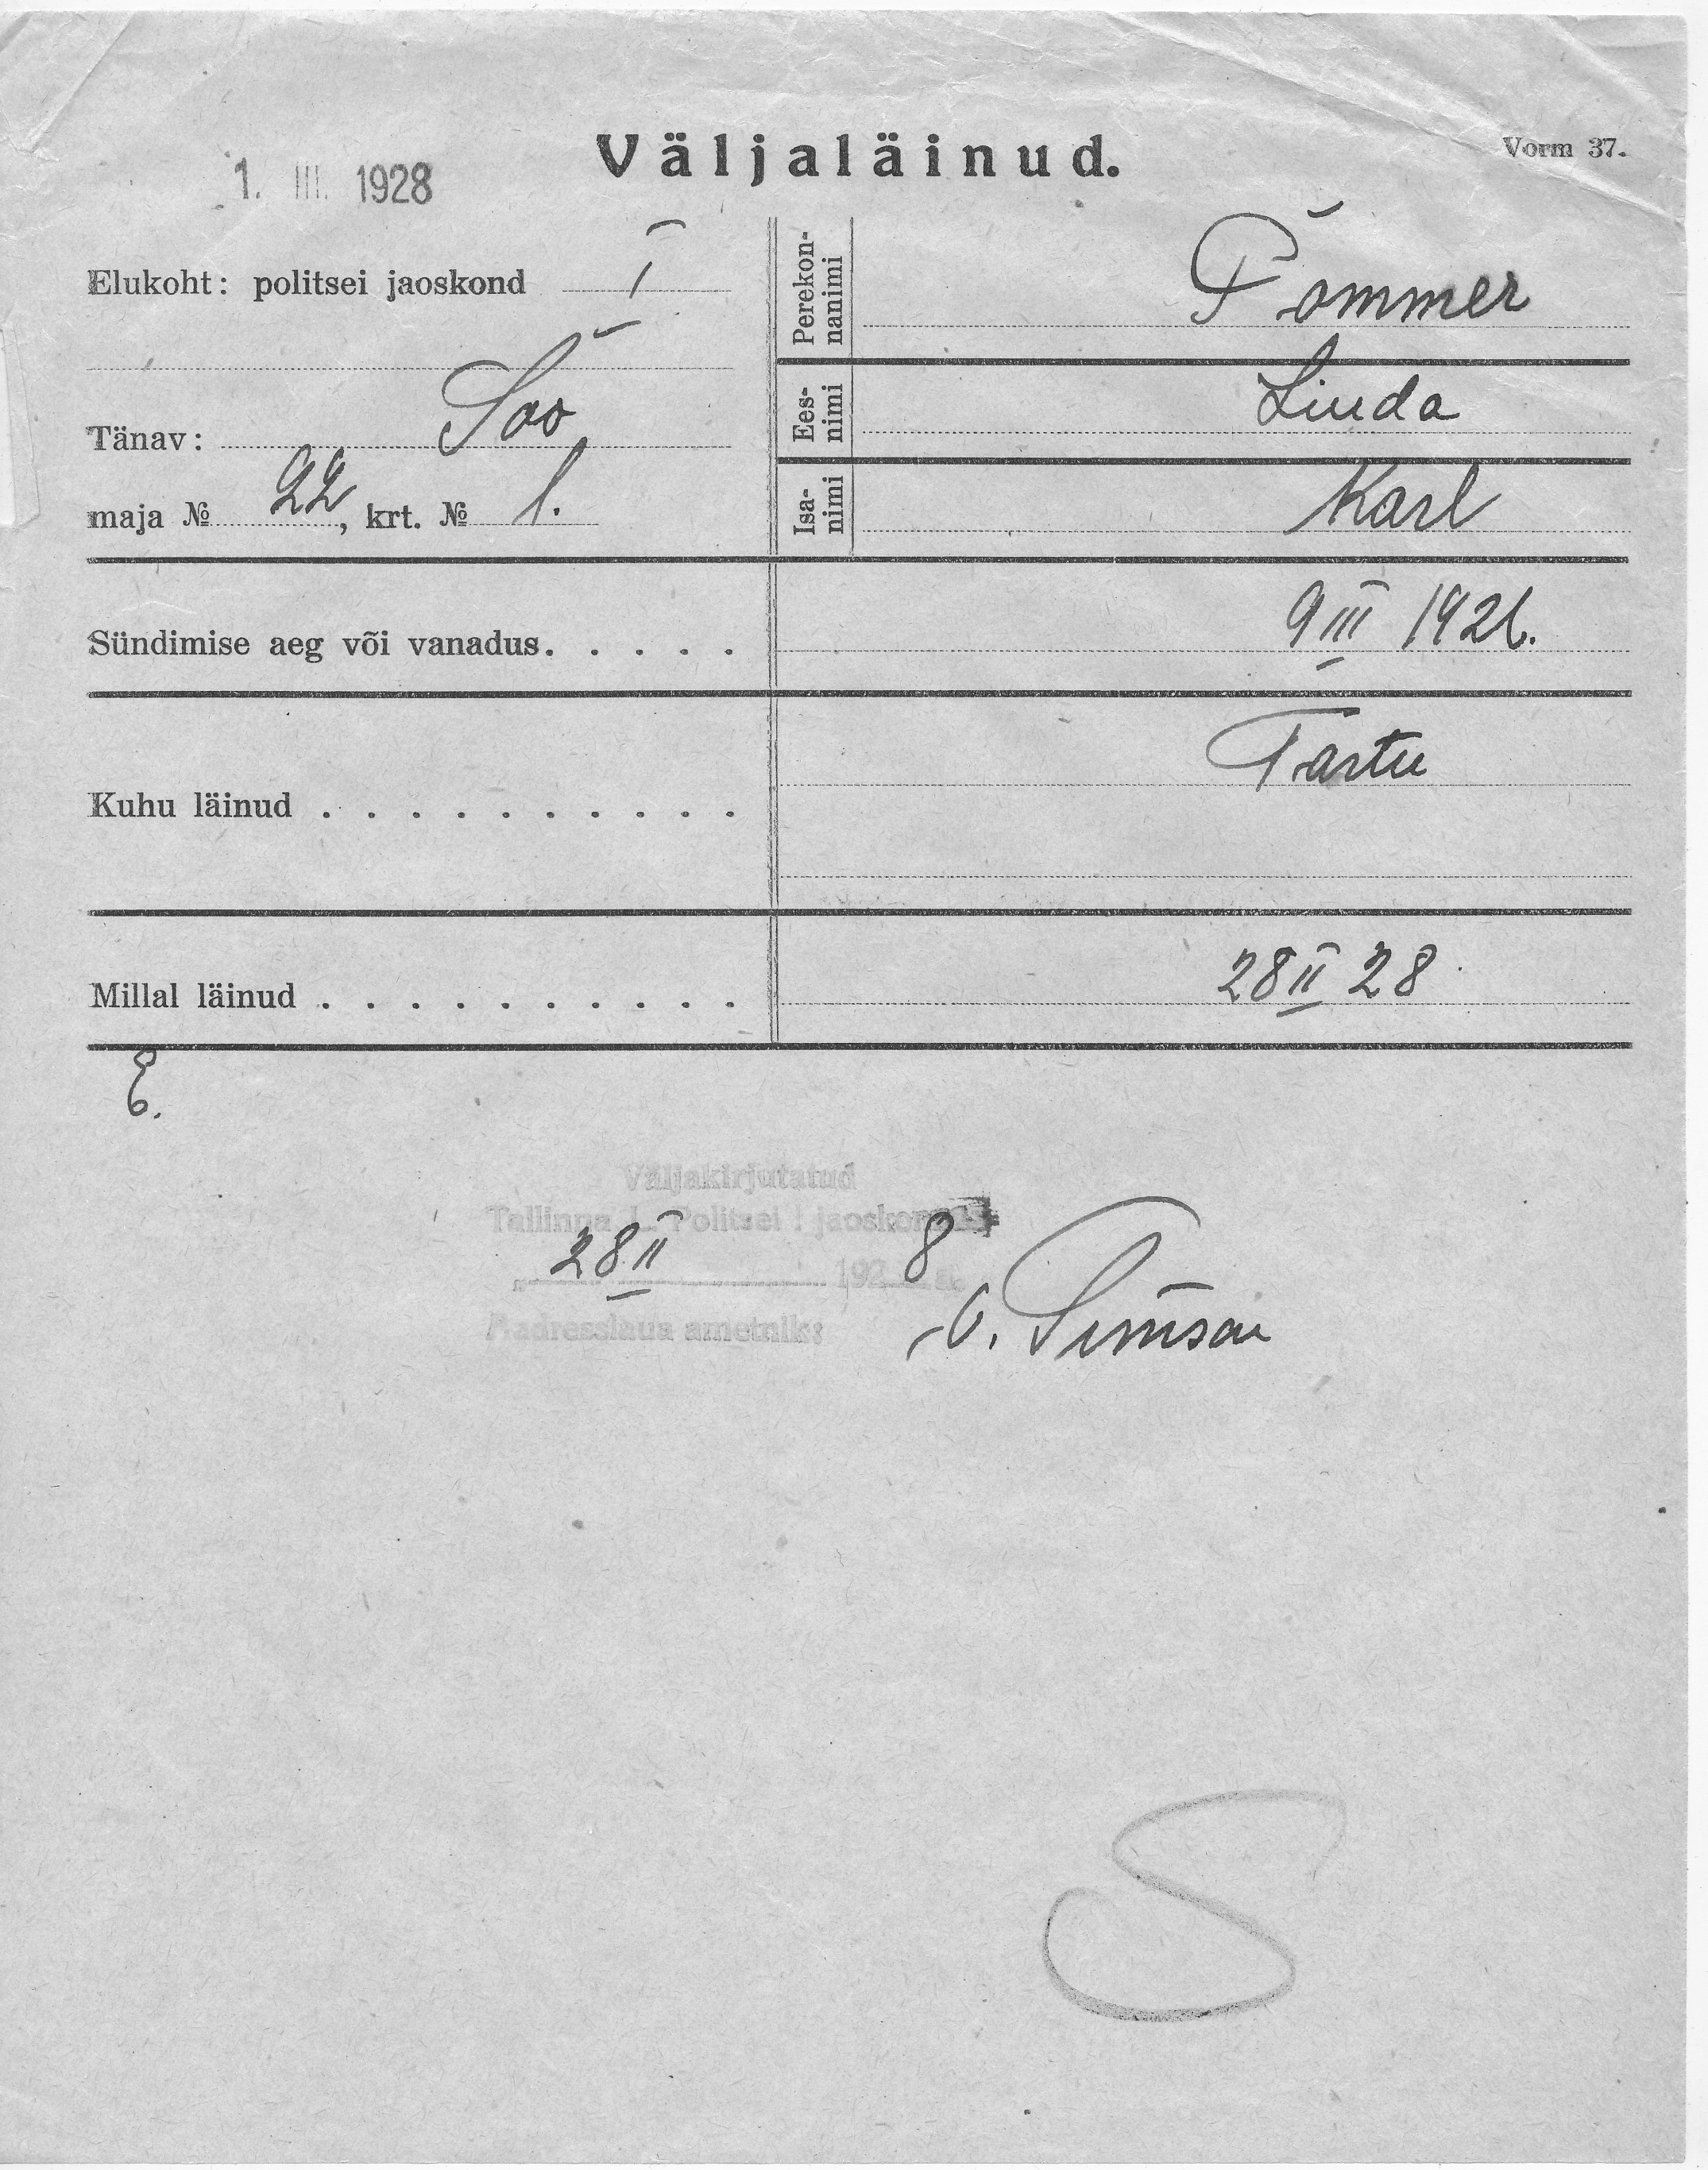 Väljaläinud.
Vorm 37.
1. III. 1928
Elukoht: politsei jaoskond I
Tänav: Soo
maja № 22, krt. № 1.
Perekon-
nanimi
Pommer
Ees-
nimi
Linda
Isa-
nimi
Karl
Sündimise aeg või vanadus. . . . .
9 III 1926.
Kuhu läinud . . . . . . . . . .
Tartu
Millal läinud . . . . . . . . . .
28 II 28
E.
Väljakirjutatud
Tallinna L. Politsei I jaoskonnast
„ 28 II 1928 a.
Aadresslaua ametnik:
Simson